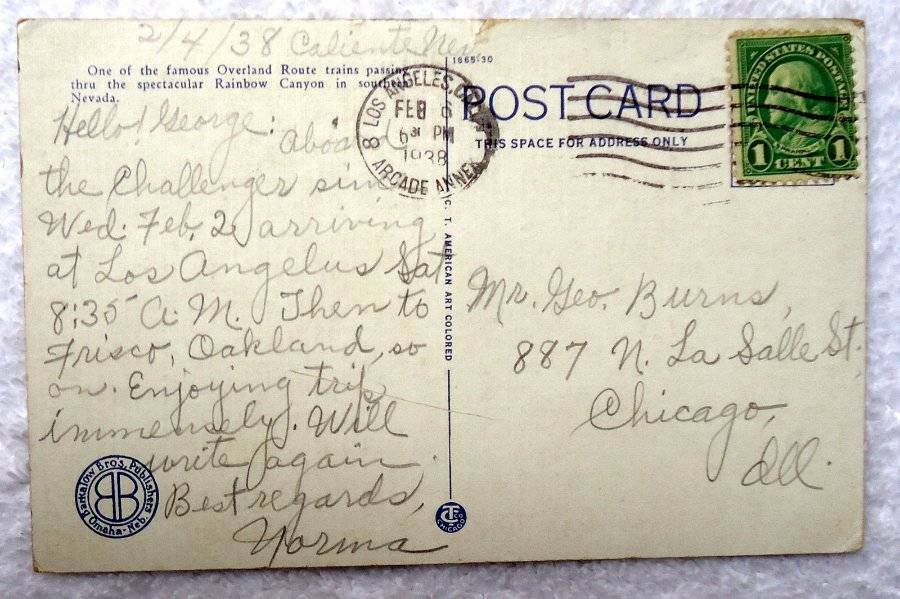 2/4/38 Caliente Nev
One of the famous Overland Route trains passing
thru the spectacular Rainbow Canyon in southern
Nevada.
Hello! George:
Aboard
the Challenger since
Wed. Feb. 2 arriving
at Los Angelus Sat
8:35 A.M. Then to
Frisco, Oakland, so
on. Enjoying trip
immensely. Will
write again.
Best regards,
Norma
Barkalow Bro's. Publishers
Omaha-Neb.
BB
1865-30
LOS ANGELES, CALIF.
8
FEB 6
6 PM
1938
ARCADE ANNEX
C. T. AMERICAN ART COLORED
CHICAGO
POST CARD
THIS SPACE FOR ADDRESS ONLY
UNITED STATES POSTAGE
1 CENT 1
Mr. Geo. Burns,
887 N. La Salle St.
Chicago,
Ill.